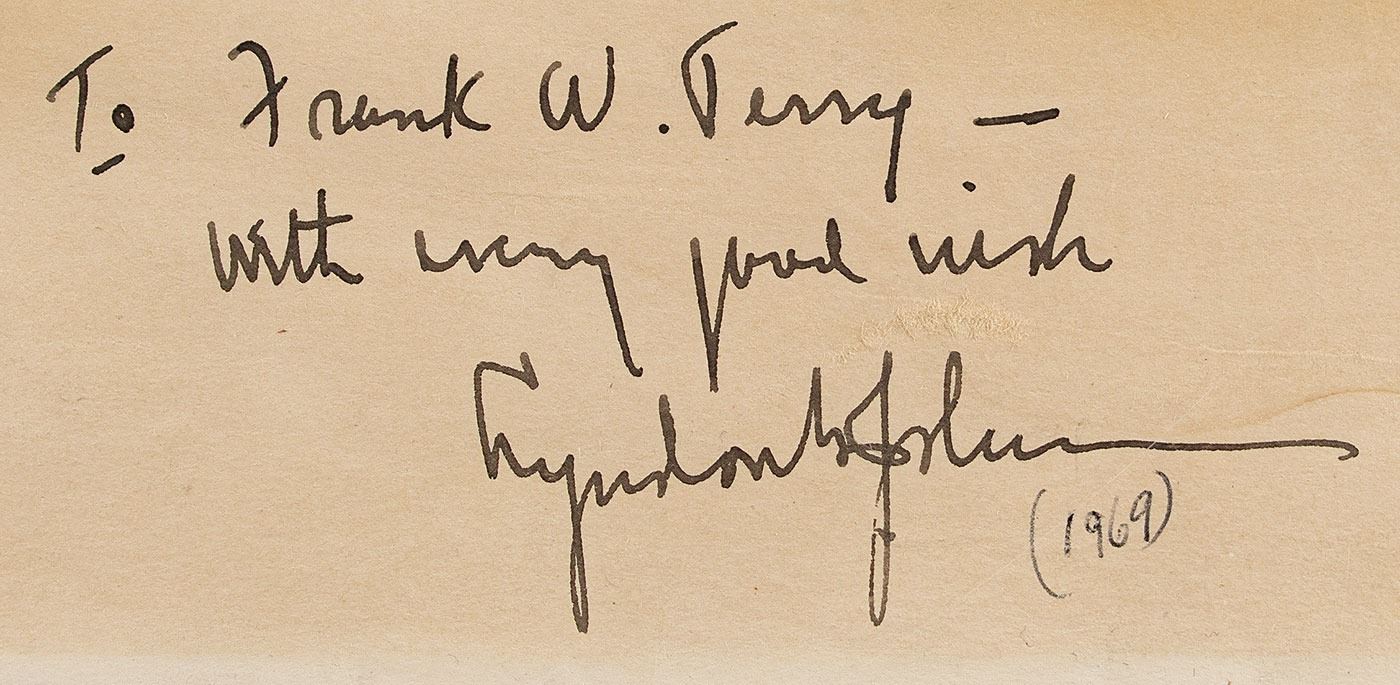 To Frank W. Terry —
with every good wish
Lyndon B Johnson
(1969)